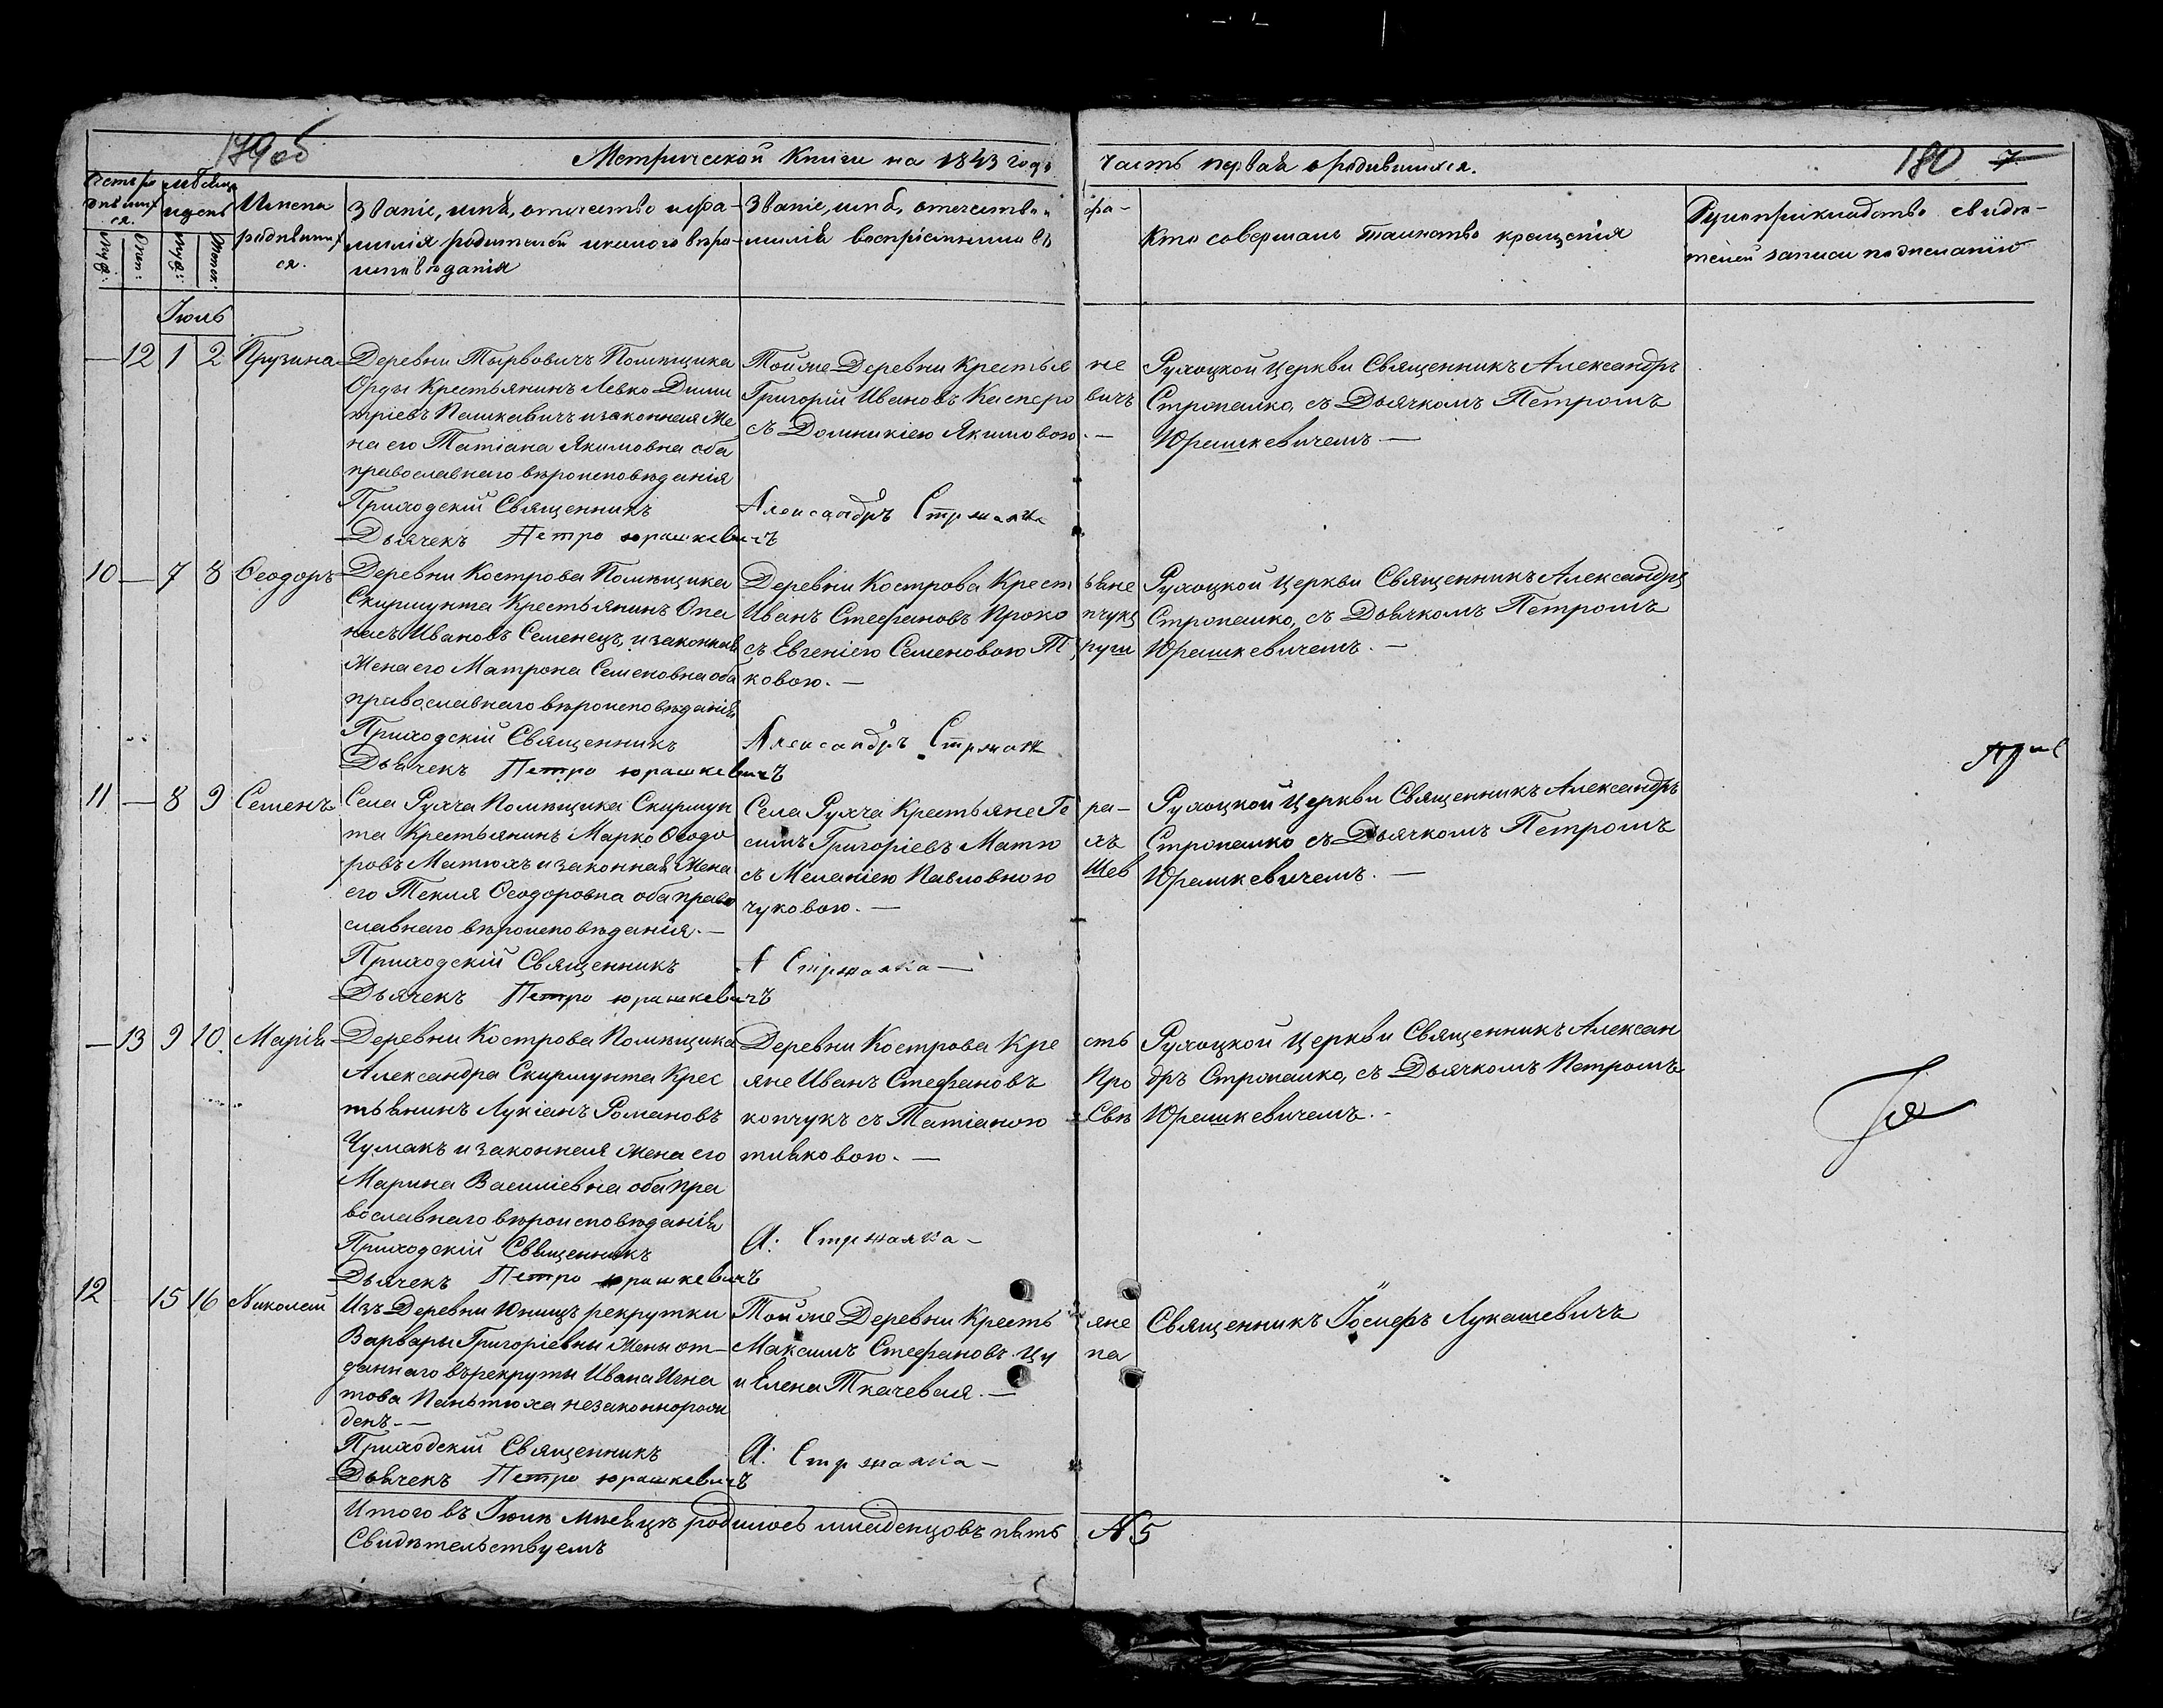 179 об
Метрической Книги на 1843 годъ часть первая о родившихся.
180 7
Счетъ ро мѣсяцъ
дивших и день
ся.
муж: жен: рожд: крещ:
Имена
родивших
ся.
Званіе, имя, отчество и фа-
милія родителей и какого вѣро-
исповѣданія
Званіе, имя, отчество и фа-
милія воспріемниковъ
Кто совершалъ таинство крещенія
Рукоприкладство свидѣ-
телей записи по желанію
Іюль
— 12 1 2 Прузина
Деревни Тырвовичъ Помѣщика
Орды Крестьянинъ Левко Дими
тріевъ Пашкевичъ и законная Же
на его Татіана Якимовна оба
православнаго вѣроисповѣданія
Приходскій Священникъ
Дьячекъ Петро Юрашкевичъ
Той же Деревни Крестья не
Григорій Ивановъ Касперо вичъ
съ Домникіею Якимовою. —
Александръ
Церкви Священникъ Александръ
съ Дьячкомъ Петромъ
Юрашкевичемъ —
10 — 7 8 Ѳеодоръ
Деревни Кострова Помѣщика
Скирмунта Крестьянинъ Опа
насъ Ивановъ Семенецъ, и законная
Жена его Матрона Семеновна оба
православнаго вѣроисповѣданія
Приходскій Священникъ
Дьячекъ Петро Юрашкевичъ
Деревни Кострова Крест ьяне
Иванъ Стефановъ Проко пчукъ
съ Евгеніею Семеновою
ковою. —
Александръ
Церкви Священникъ Александръ
съ Дьячкомъ Петромъ
Юрашкевичемъ. —
11 — 8 9 Семенъ
Села Рухча Помѣщика Скирмун
та Крестьянинъ Марко Ѳеодо
ровъ Матюхъ и законная Жена
его Текля Ѳеодоровна оба право
славнаго вѣроисповѣданія. —
Приходскій Священникъ
Дьячекъ Петро Юрашкевичъ
Села Рухча Крестьяне Ге ра-
симъ Григоріевъ Матю хъ
съ Меланіею Павловною Шев
чуковою. —
Церкви Священникъ Александръ
съ Дьячкомъ Петромъ
Юрашкевичемъ. —
— 13 9 10 Марія
Деревни Кострова Помѣщика
Александра Скирмунта Крес
тьянинъ Лукіанъ Романовъ
Чумакъ и законная жена его
Марина Василіевна оба пра
вославнаго вѣроисповѣданія
Приходскій Священникъ
Дьячекъ Петро Юрашкевичъ
Деревни Кострова Кре сть
яне Иванъ Стефановъ Про
копчукъ съ Татіаною Свѣ
тляковою. —
Церкви Священникъ Алексан
дръ съ Дьячкомъ Петромъ
Юрашкевичемъ. —
12 — 15 16 Николай
Изъ Деревни Юнищъ рекрутки
Варвары Григоріевны Жены от-
даннаго въ рекруты Ивана Игна
това Паньтюха незаконнорож
денъ. —
Приходскій Священникъ
Дьячекъ Петро Юрашкевичъ
Той же Деревни Кресть яне
Максимъ Стефановъ Цу па
и Елена Ткачевая. —
Священникъ Іосифъ Лукашевичъ
Итого въ Іюлѣ мѣсяцѣ родилось младенцовъ пять № 5
Свидѣтельствуемъ